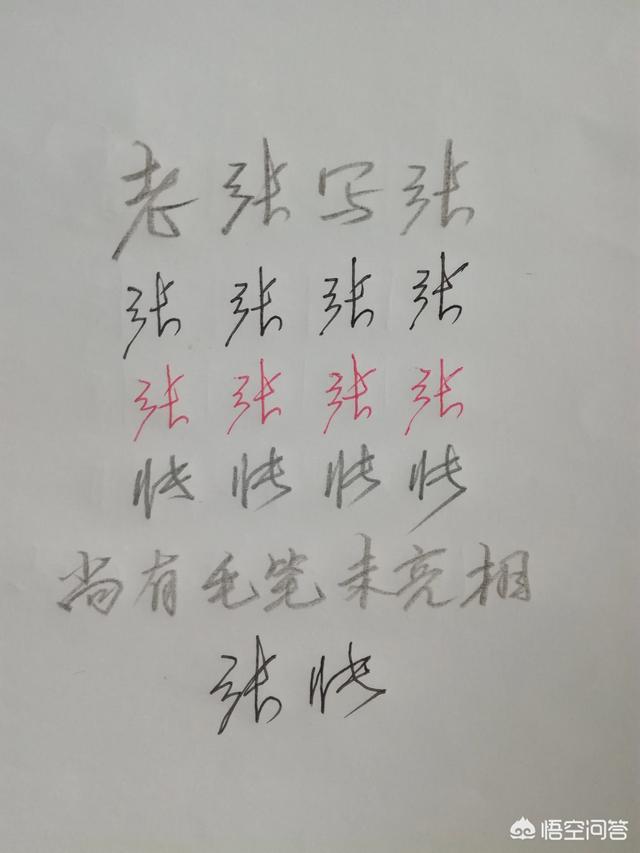 老张写张
张 张 张 张
张 张 张 张
快 快 快 快
尚有毛笔未亮相
张快
悟空问答